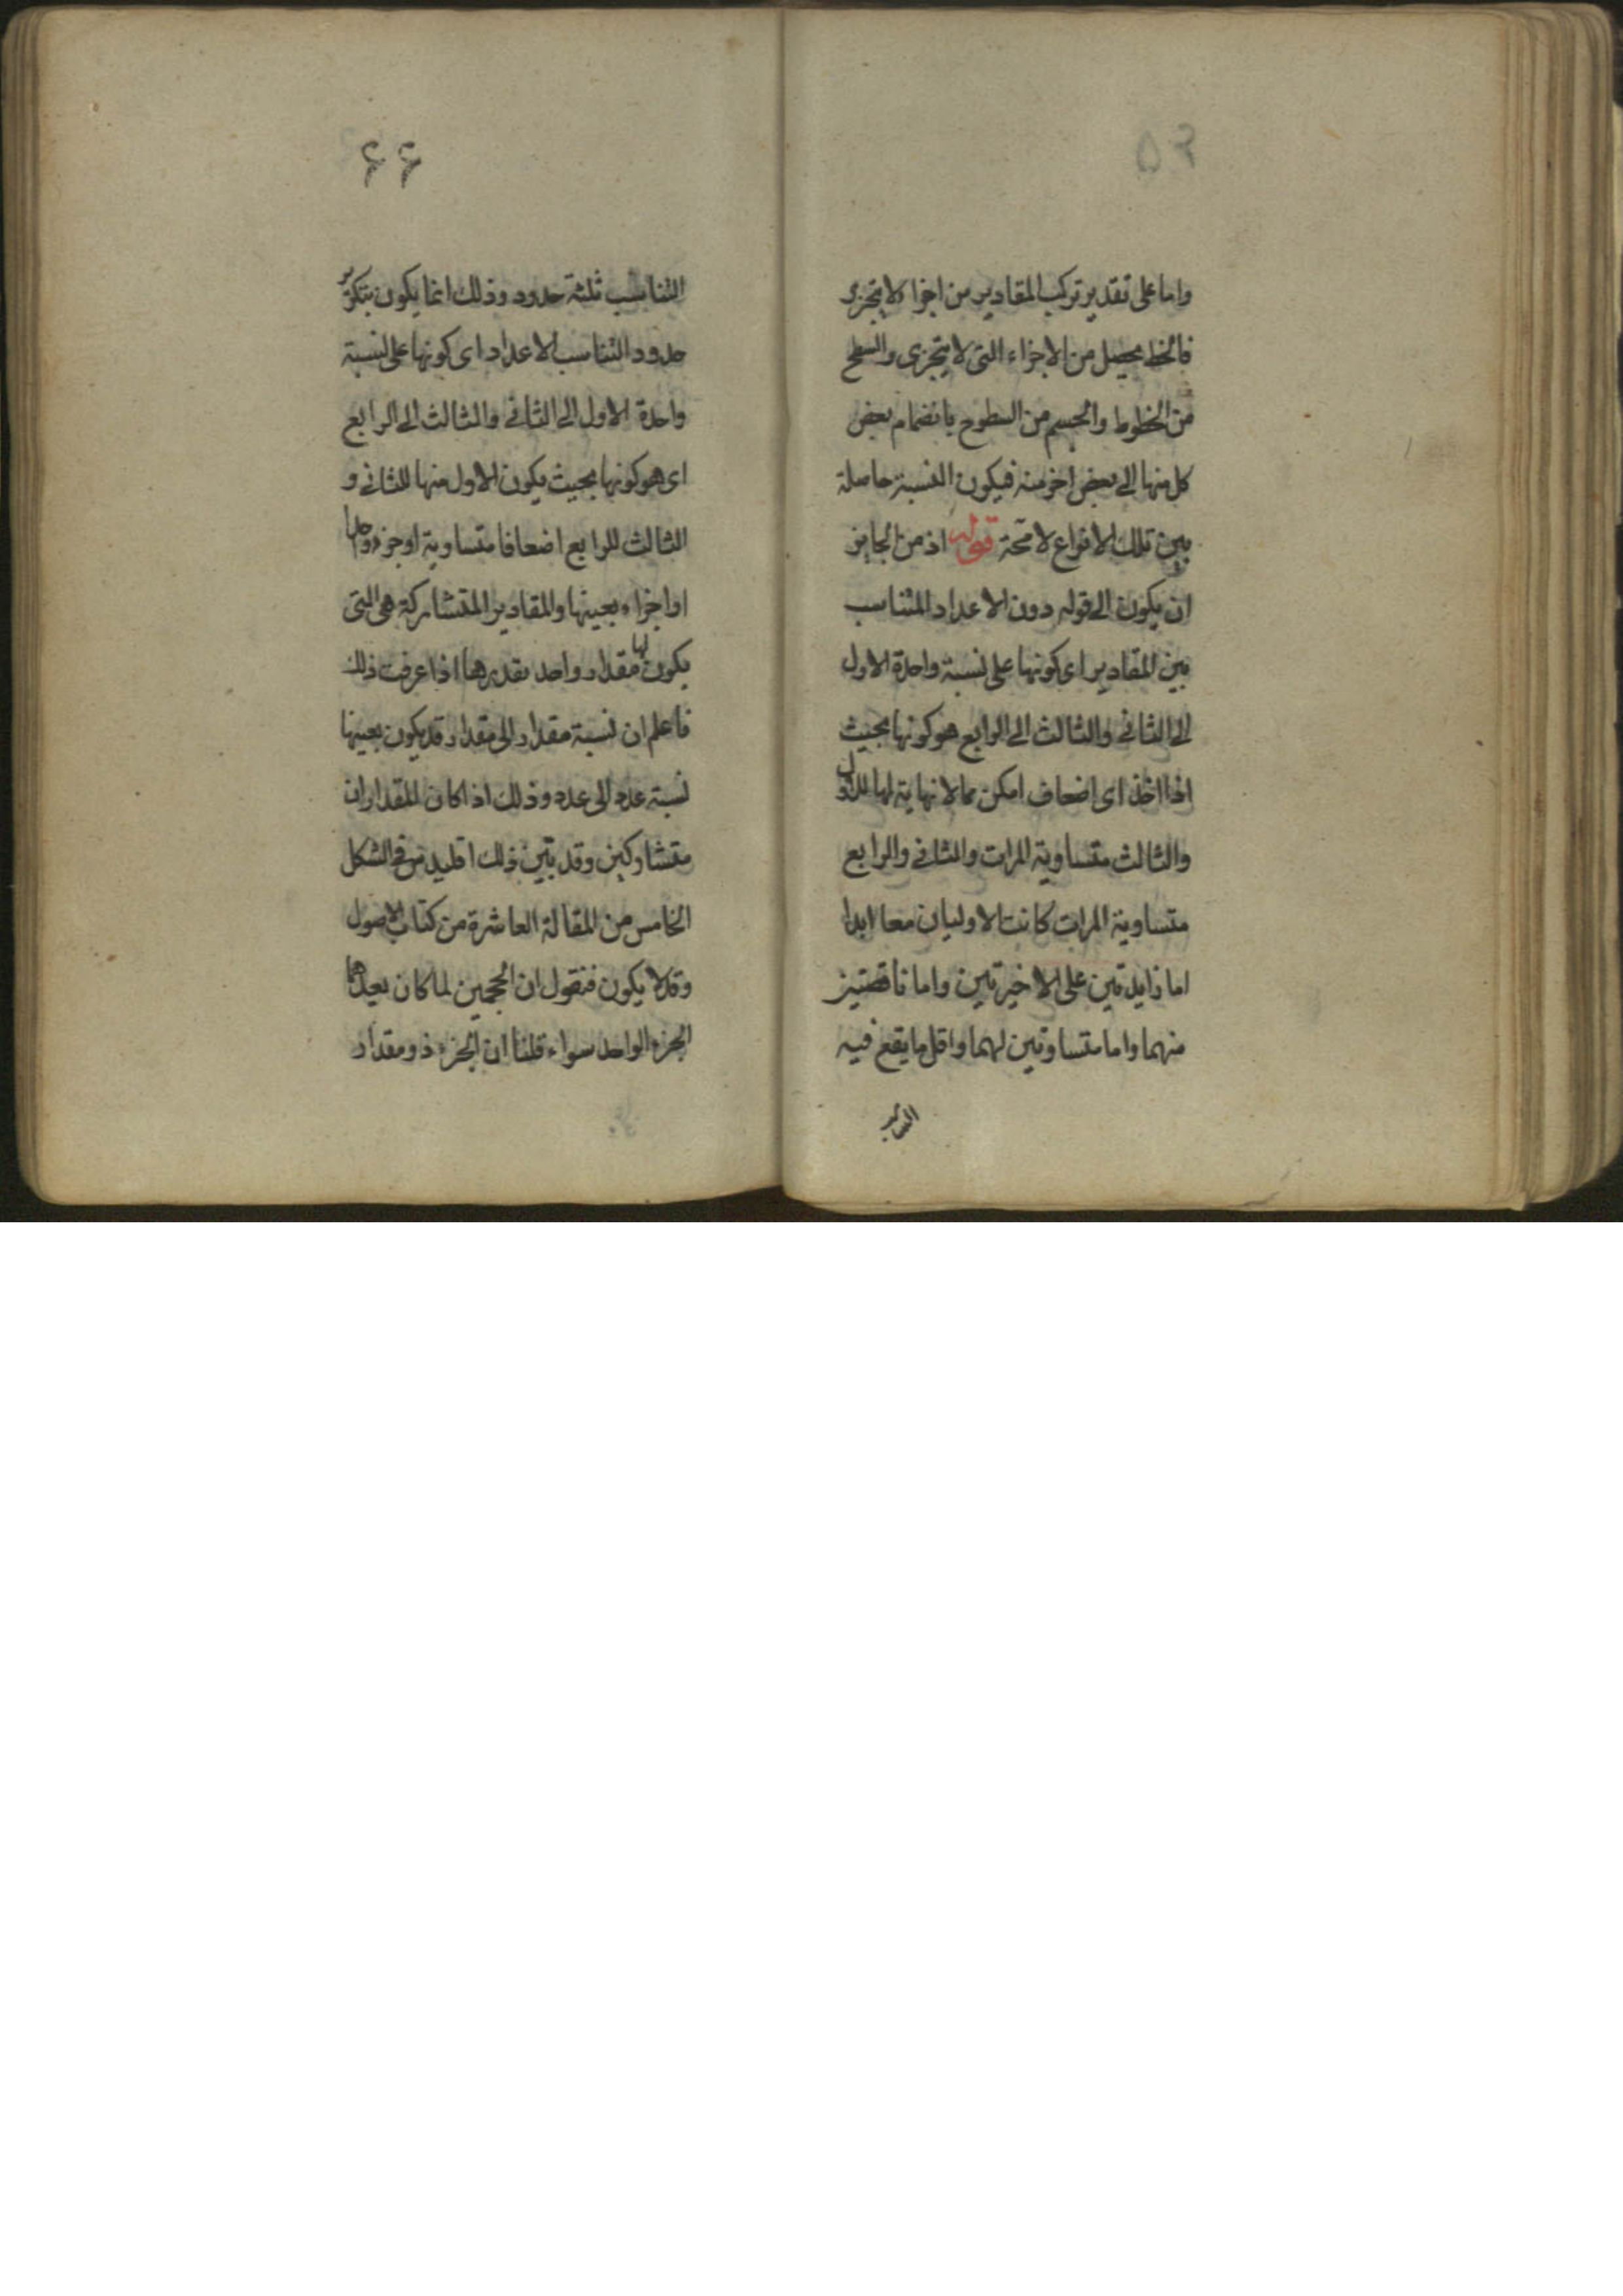 ٥٣
واما على تقدير تركب المقادير من اجزا لا يتجزى
فالخط يحصل من الاجزاء التى لا يتجزى والسطح
من الخطوط والجسم من السطوح بانضمام بعض
كل منها الى بعض اخر منه فيكون النسبة حاصلة
بين تلك الانواع لا محة قوله اذ من الجايز
ان يكون الى قوله دون الاعداد المتناسب
بين المقادير اى كونها على نسبة واحدة الاول
الى الثانى والثالث الى الرابع هو كونها بحيث
اذا اخذ اى اضعاف امكن مما لا نهاية لها للاول
والثالث متساوية المرات والثانى والرابع
متساوية المرات كانت الاوليان معا ابدا
اما زايدتين على الاخيرتين واما ناقصتين
منهما واما متساوتين لهما واقل ما يقع فيه
التناسب
۶۶
التناسب ثلثة حدود وذلك انما يكون بتكرير
حدود التناسب الاعداد اى كونها على نسبة
واحدة الاول الى الثانى والثالث الى الرابع
اى هو كونها بحيث يكون الاول منها للثانى و
الثالث للرابع اضعافا متساوية او جزءا واحدا
او اجزاء بعينها والمقادير المتشاركة هى التى
يكون لها مقدار واحد يقدرها اذا عرفت ذلك
فاعلم ان نسبة مقدار الى مقدار قد يكون بعينها
نسبة عدد الى عدد وذلك اذا كان المقداران
متشاركين وقد بين ذلك اقليدس فى الشكل
الخامس من المقالة العاشرة من كتاب الاصول
وقد لا يكون فنقول ان الحجمين لما كان يعدهما
الجزء الواحد سواء قلنا ان الجزء ذو مقدار